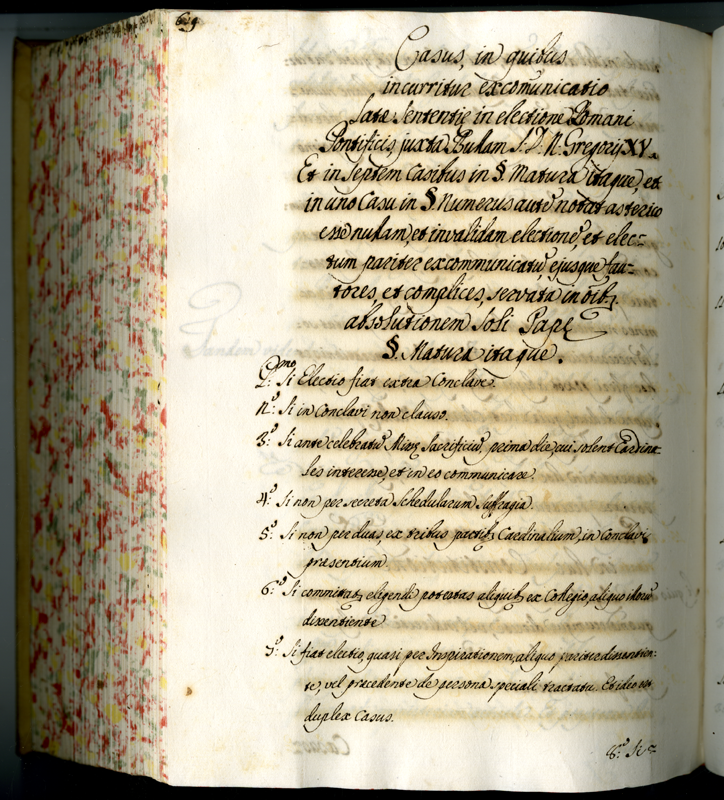 629
Casus, in quibus
incurritur excomunicatio
latæ sententie in electione Romani
Pontificis juxta Bullam S. D. N. Gregorij XV.
Et in septem casibus in §. Matura itaque, et
in uno Casu in §. Numerus autē notat asterico
esse nullam, et invalidam electionē, et elec-
tum pariter excommunicatū, ejusque fau-
tores, et complices, servata in oib,
absolutionem soli Papę
§. Matura itaque.
P.mo Si Electio fiat extra Conclave.
2.º Si in Conclavi non clauso.
3.º Si ante celebratū Missę Sacrificiū, prima die, cui solent Cardina-
les interesse, et in eo communicare.
4.º Si non per secreta schedularum suffragia.
5.º Si non per duas, ex tribus partib, Cardinalium, in Conclavi
præsentium.
6.º Si commitat, eligendi potestas aliquib, ex Collegio, aliquo illorū
dissentiente
7.º Si fiat electio, quasi per Inspirationem, aliquo pariter dissentien-
te, vel præcedente de persona speciali tractatu. Et ideo est
duplex Casus.
8.º Si